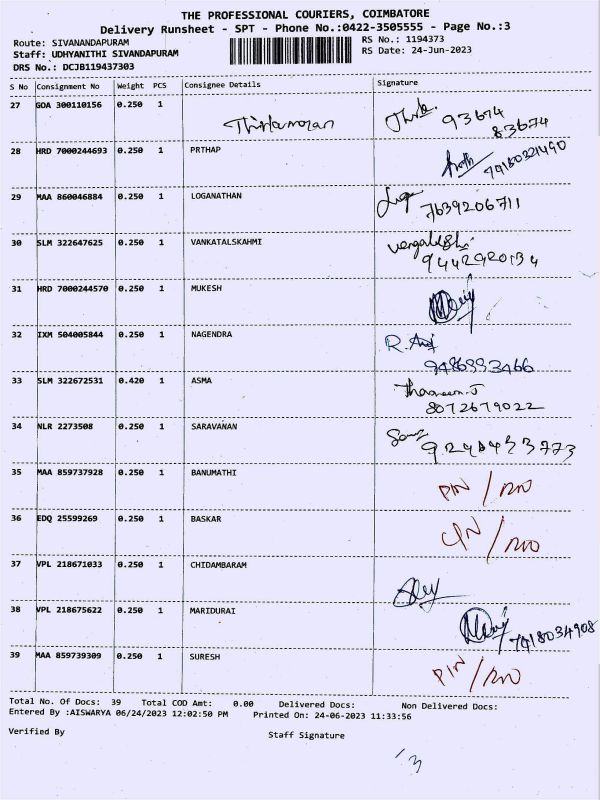 THE PROFESSIONAL COURIERS, COIMBATORE
Delivery Runsheet - SPT - Phone No.:0422-3505555 - Page No.:3
Route: SIVANANDAPURAM
RS No.: 1194373
Staff: UDHYANITHI SIVANDAPURAM
RS Date: 24-Jun-2023
DRS No.: DCJB119437303
S No Consignment No Weight PCS Consignee Details Signature
27 GOA 300110156 0.250 1
93674
83674
28 HRD 7000244693 0.250 1 PRTHAP
29 MAA 860046884 0.250 1 LOGANATHAN
7639206711
30 SLM 322647625 0.250 1 VANKATALSKAHMI
9442920134
31 HRD 7000244570 0.250 1 MUKESH
32 IXM 504005844 0.250 1 NAGENDRA
9486993466
33 SLM 322672531 0.420 1 ASMA
Thasneem.J
8072679022
34 NLR 2273508 0.250 1 SARAVANAN
35 MAA 859737928 0.250 1 BANUMATHI
36 EDQ 25599269 0.250 1 BASKAR
37 VPL 218671033 0.250 1 CHIDAMBARAM
38 VPL 218675622 0.250 1 MARIDURAI
7418034908
39 MAA 859739309 0.250 1 SURESH
Total No. Of Docs: 39 Total COD Amt: 0.00 Delivered Docs: Non Delivered Docs:
Entered By :AISWARYA 06/24/2023 12:02:50 PM Printed On: 24-06-2023 11:33:56
Verified By Staff Signature